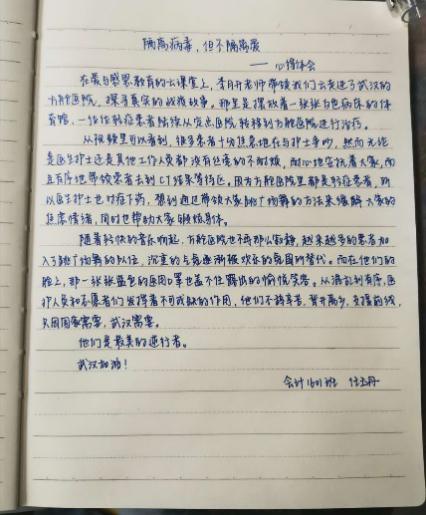 隔离病毒，但不隔离爱
——心得体会
在最爱感恩教育的云课堂上，李月开老师带领我们云走进了武汉的
方舱医院，探寻真实的战疫故事。那里是摆放着一张张白色病床的体
育馆，一位位轻症患者陆续从定点医院转移到方舱医院进行治疗。
从视频里可以看到，很多患者十分焦急地在与护士争吵，然而无论
是医生护士还是其他工作人员都没有丝毫的不耐烦，耐心地安抚着大家，而
且有序地带领患者去到CT结果等待区。因为方舱医院里都是轻症患者，所
以医生护士也对症下药，想到通过带领大家跳广场舞的方法来缓解大家的
焦虑情绪，同时也帮助大家锻炼身体。
随着轻快的音乐响起，方舱医院也不再那么寂静，越来越多的患者加
入了跳广场舞的队伍，沉重的与焦急渐被欢乐的氛围所替代。而在他们的
脸上，那一张张蓝色的医用口罩也盖不住露出的愉悦笑容。从混乱到有序，医
护人员和志愿者们发挥着不可或缺的作用，他们不辞辛苦，背井离乡，支援前线，
只因国家需要，武汉需要。
他们是最美的逆行者。
武汉加油！
会计1601班 任玉丹